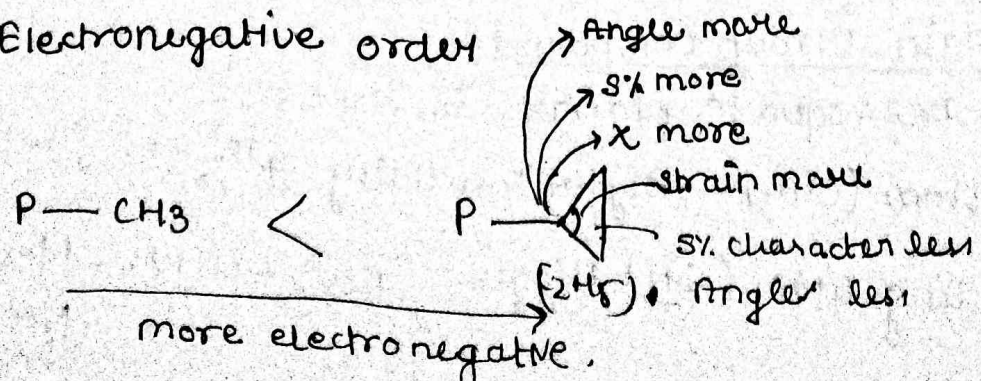 Electronegative order
Angle more
S% more
x more
strain more
P — CH3 < P —
S% character less
Angles less
more electronegative.